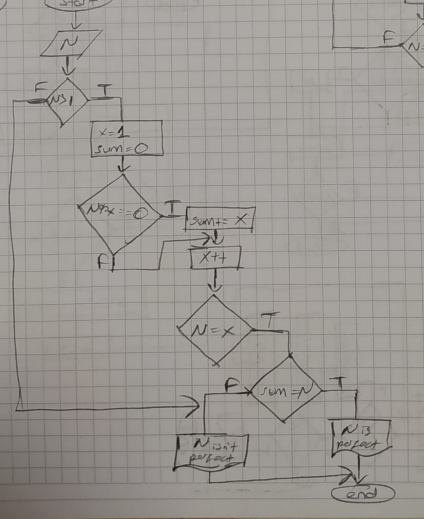 start
N
F
N>1
T
x=1
sum=0
N%x==0
T
sum+=x
F
x++
N=x
T
F
sum=N
T
N isn't
perfect
N is
perfect
end
F